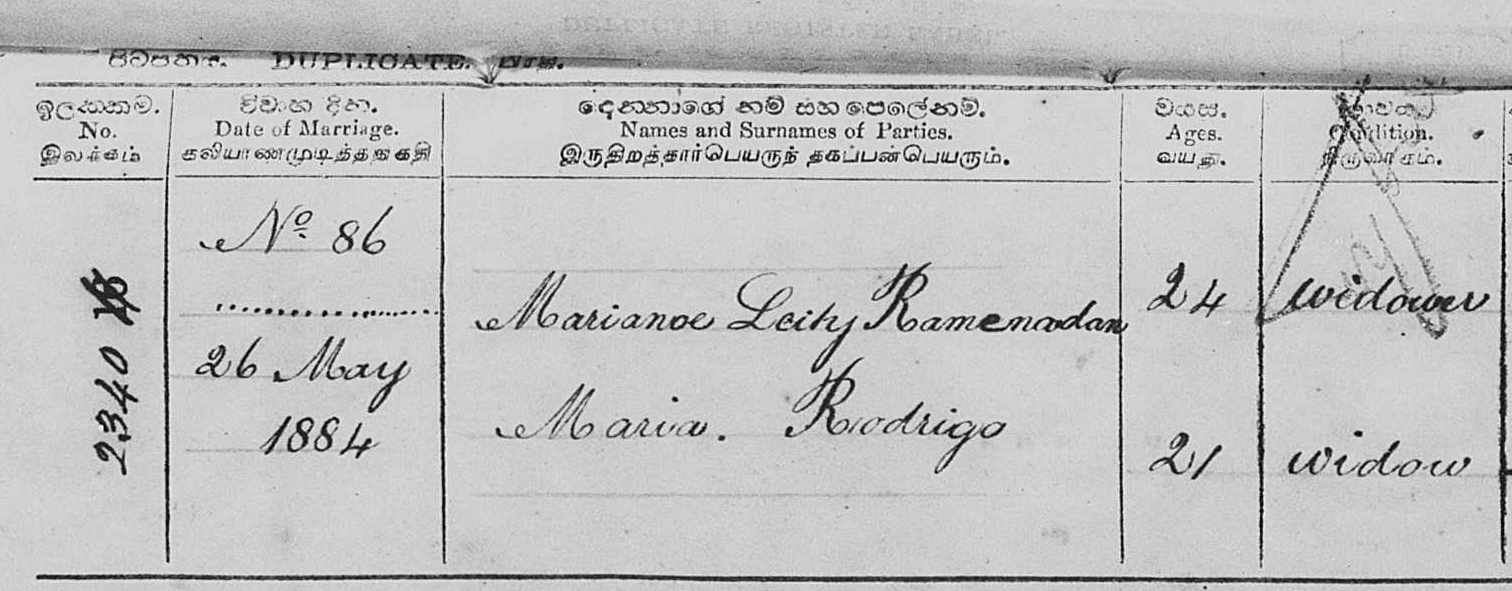 පිටපත. DUPLICATE.
ඉලක්කම. විවාහ දින. දෙන්නාගේ නම් සහ පෙලේනම්. වයස.
No. Date of Marriage. Names and Surnames of Parties. Ages. Condition.
இலக்கம் கலியாணமுடித்ததிகதி இருதிறத்தார்பெயருந் தகப்பன்பெயரும். வயது.
No. 86
26 May
1884
2340
Marianoe Lcity Ramenadan 24 widower
Maria. Rodrigo 21 widow